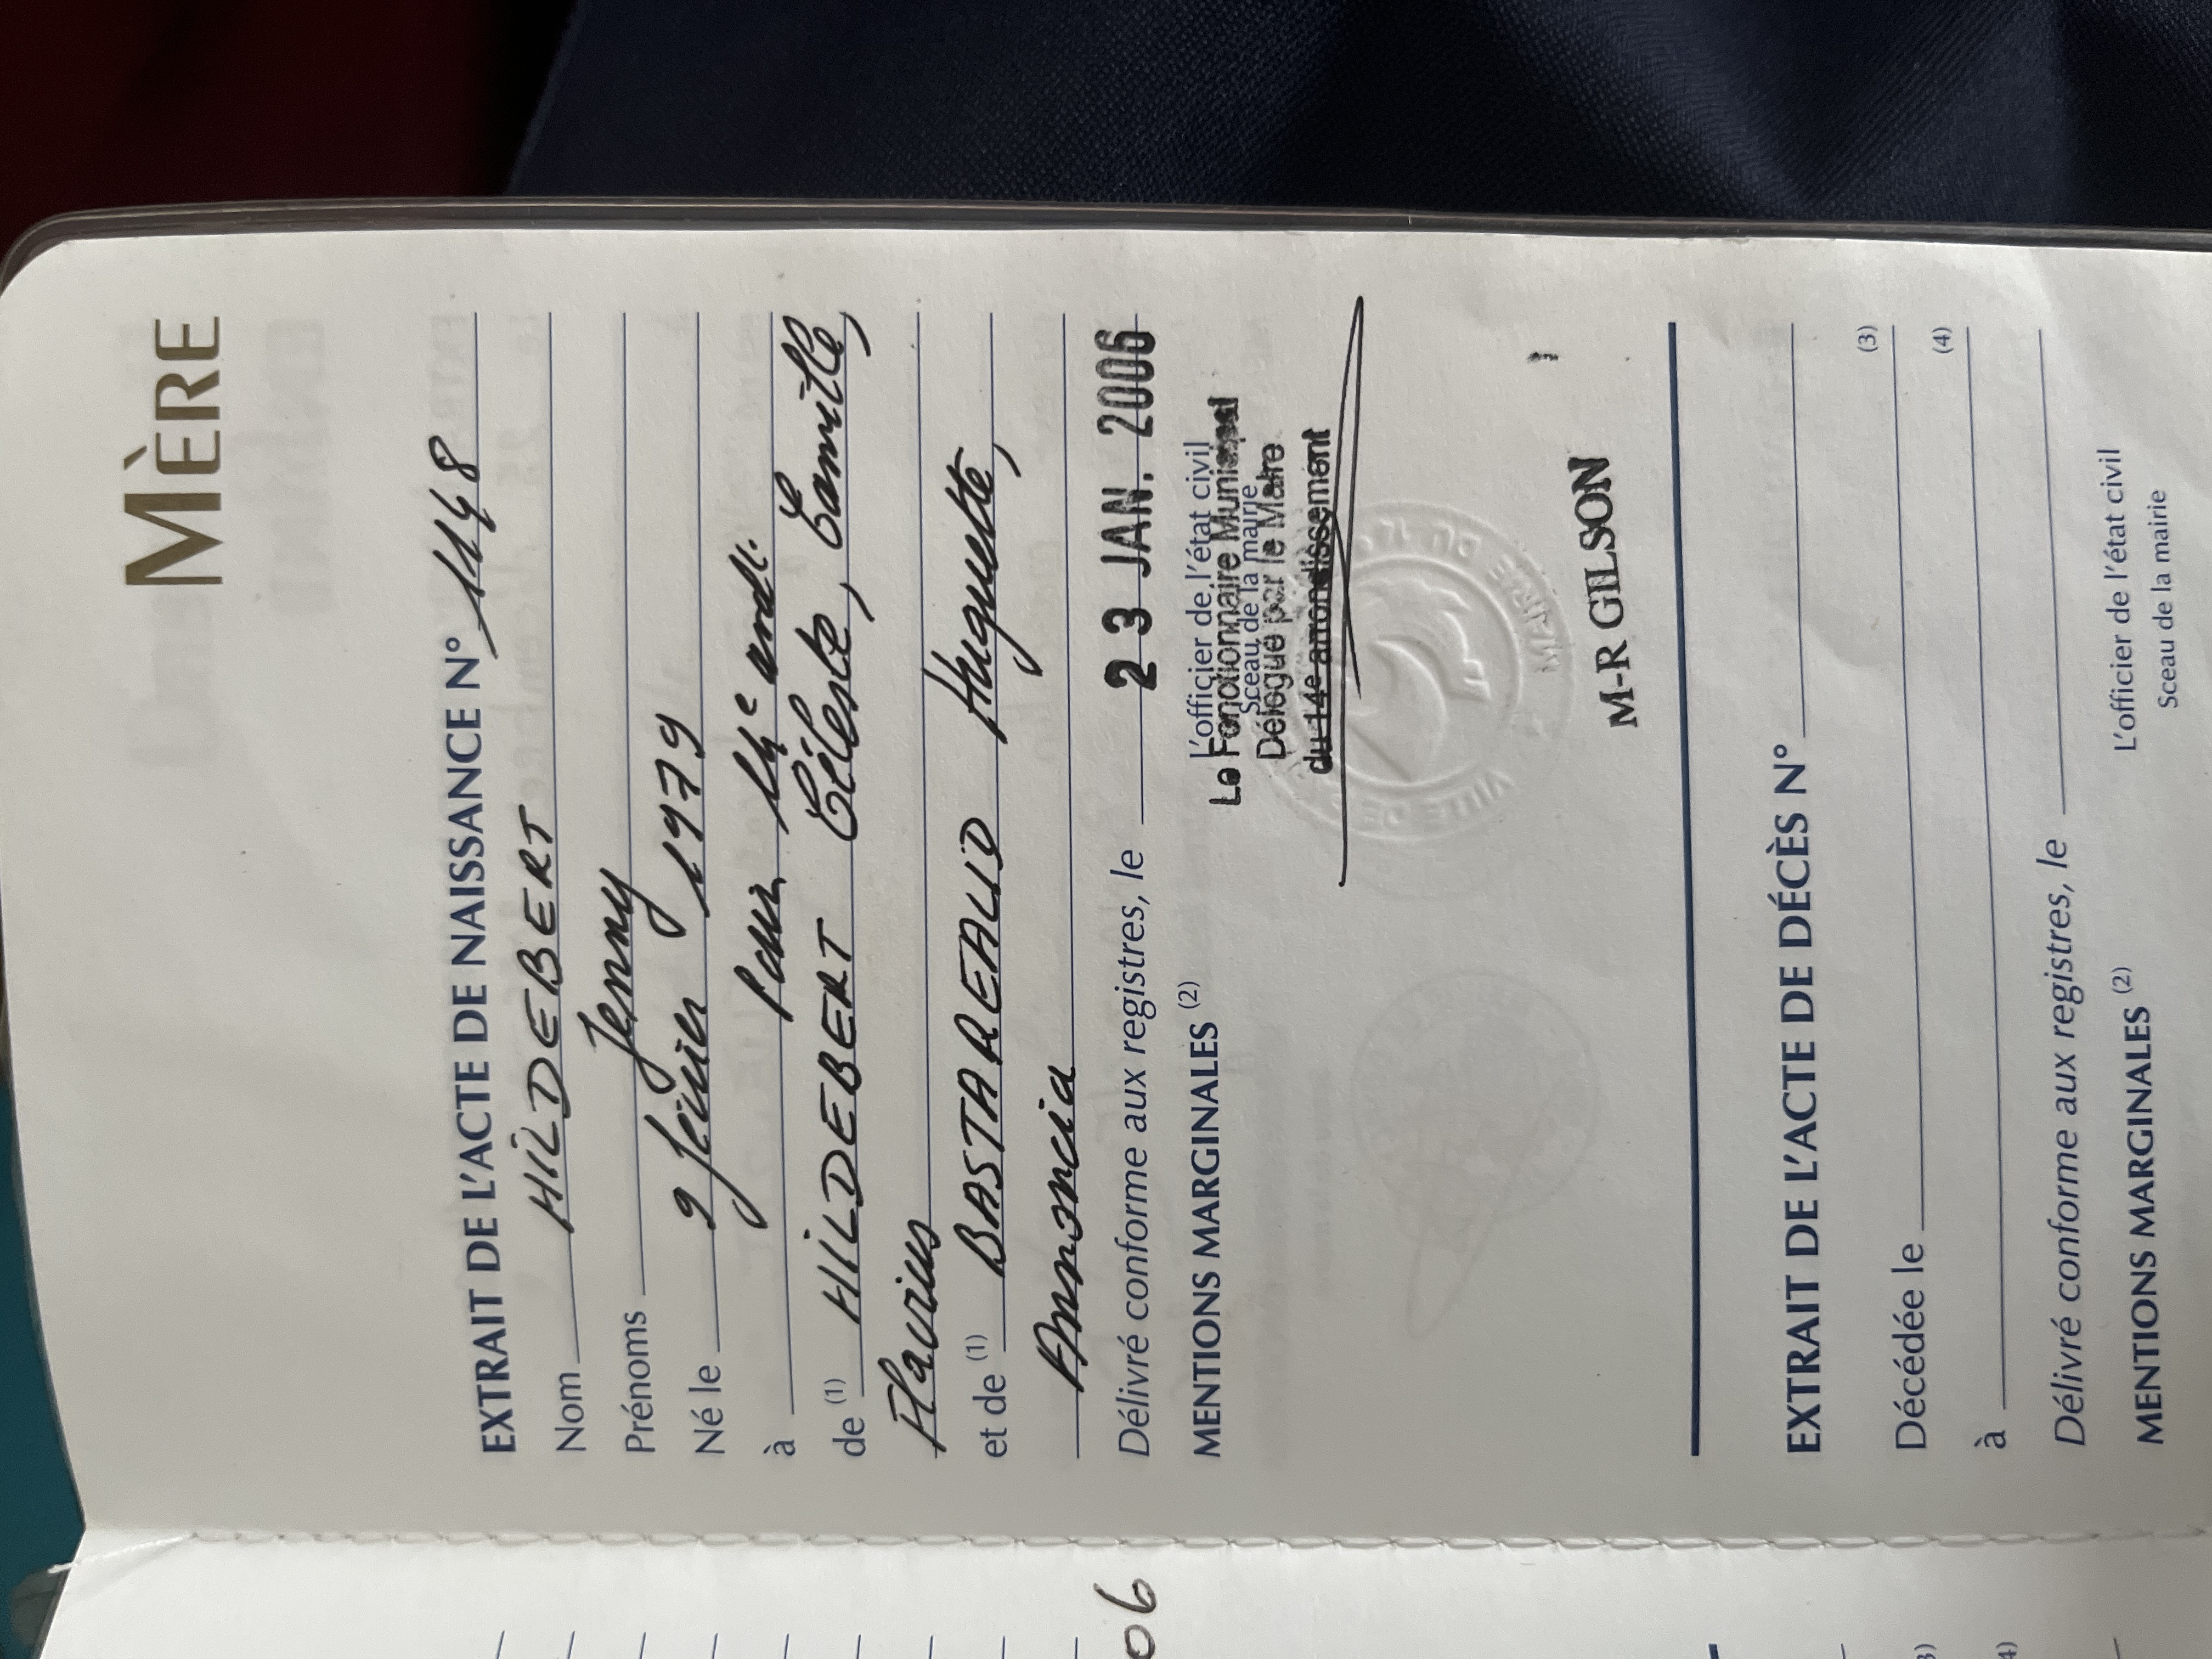 MÈRE
EXTRAIT DE L'ACTE DE NAISSANCE N° 1148
Nom HILDEBERT
Prénoms Jenny
Né le 9 février 1979
à Paris 14e arrdt.
de (1) HILDEBERT Céleste, Camille,
Flavius
et de (1) BASTAREAUD Huguette,
Amancia
Délivré conforme aux registres, le 23 JAN. 2006
MENTIONS MARGINALES (2)
L'officier de l'état civil
Sceau de la mairie
Le Fonctionnaire Municipal
Délégué par le Maire
du 14e arrondissement
M-R GILSON
EXTRAIT DE L'ACTE DE DÉCÈS N°
Décédée le (3)
à (4)
Délivré conforme aux registres, le
MENTIONS MARGINALES (2)
L'officier de l'état civil
Sceau de la mairie
06
3)
4)